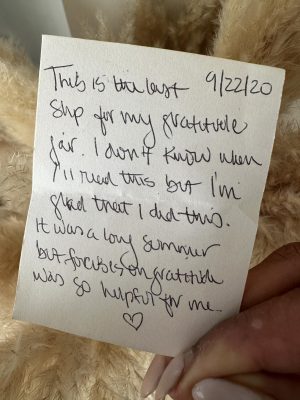 9/22/20
This is the last
slip for my gratitude
jar. I don't know when
I'll read this but I'm
glad that I did this.
It was a long summer
but focusing on gratitude
was so helpful for me.
♡